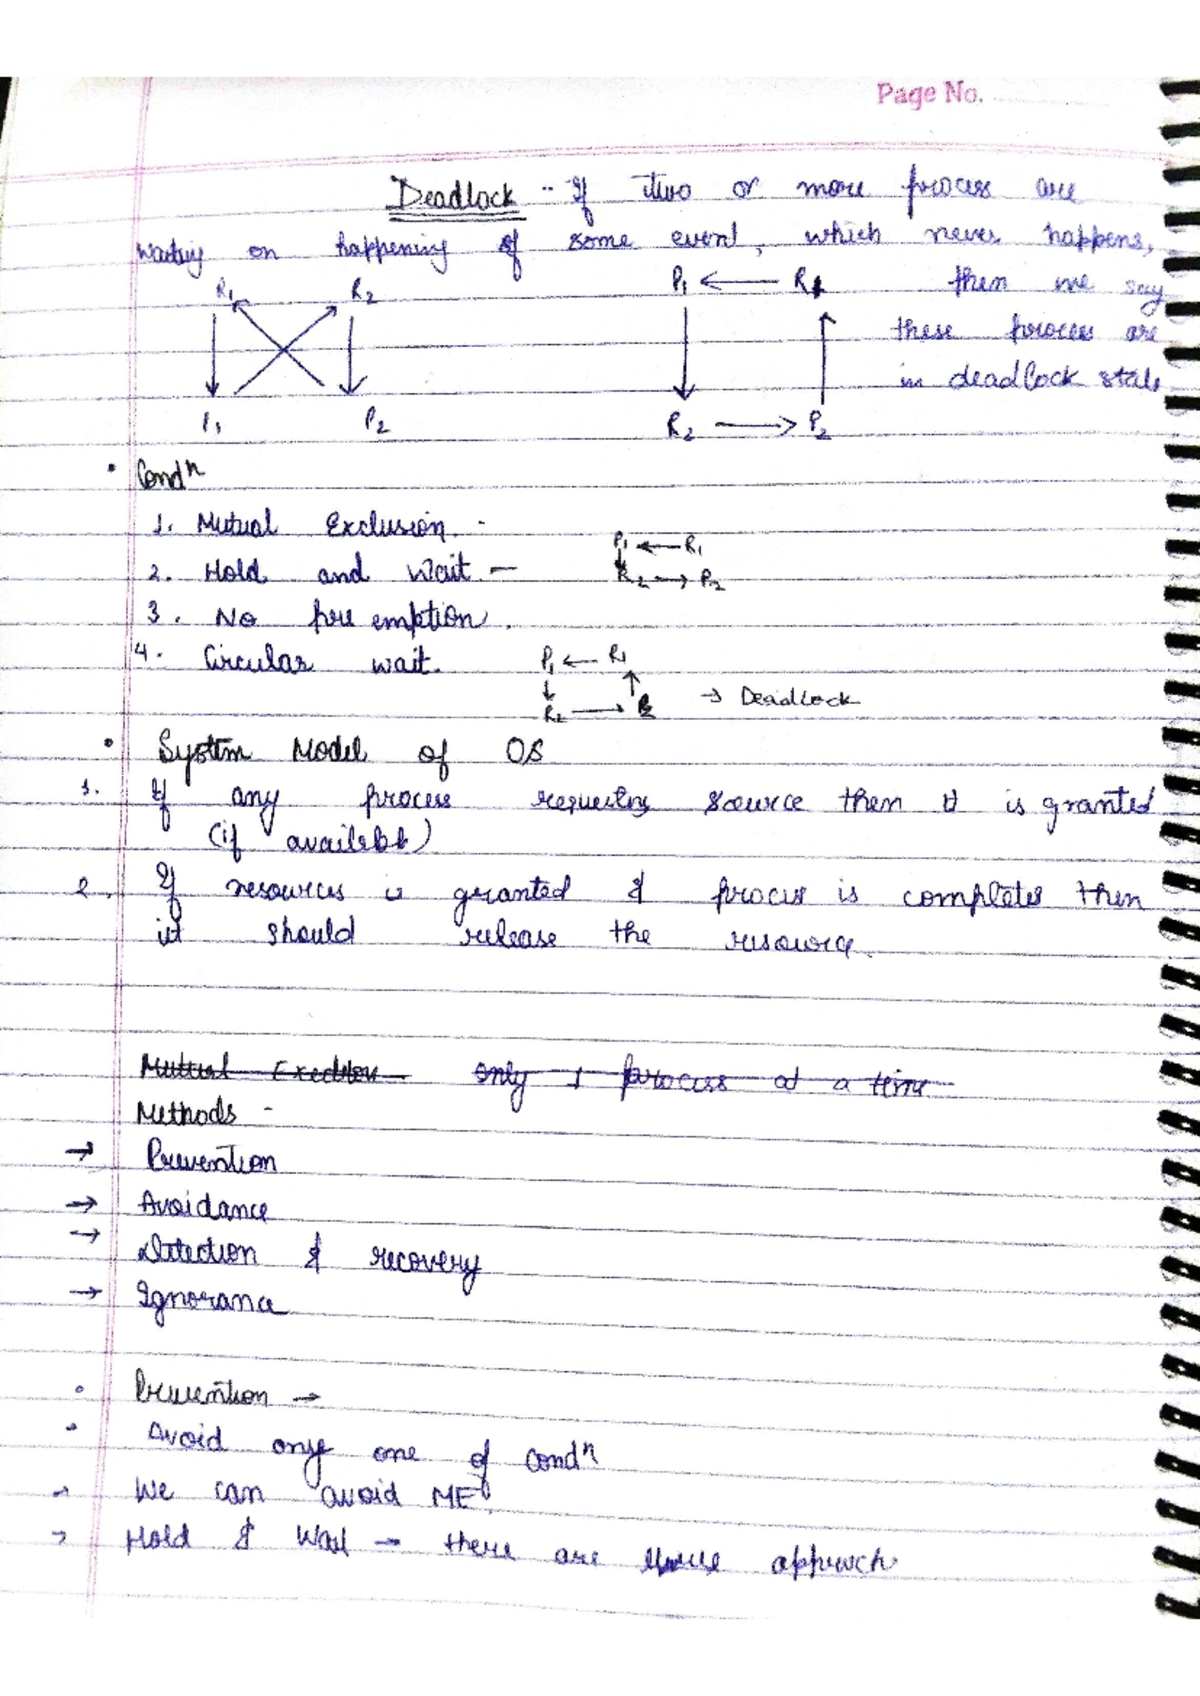 Page No.
Deadlock :- If two or more process are
waiting on happening of some event, which never happens,
R1 R2 P1 R1 then we say
these process are
in deadlock state
P1 P2 R2 P2
• Condn
1. Mutual Exclusion -
P1 R1
2. Hold and Wait - R2 P2
3. No pre emption.
4. Circular wait. P1 R1
R2 P2 → Deadlock
• System Model of OS
1. If any process requesting source then it is granted
(if available)
2. If resources is granted & process is completes then
it should release the resource.
Mutual Only 1 process at a time
Methods -
→ Prevention
→ Avoidance
→ Detection & recovery
→ Ignorance
• Prevention →
• Avoid any one of condn
→ We can avoid ME
→ Hold & Wait → there are approach